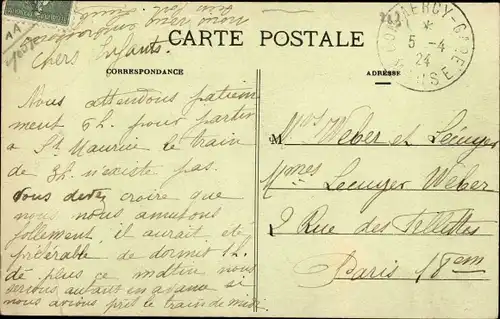 CARTE POSTALE
CORRESPONDANCE
ADRESSE
COMMERCY-GARE
5 -4
24
MEUSE
Chers Enfants.
Nous attendons patiem
ment 6h. pour partir
à St Maurice le train
de 3h. n'existe pas.
vous devez croire que
nous nous amusons
follement, il aurait été
préférable de dormir 1h.
de plus ce matin nous
serions autant en avance si
nous avions pris le train de midi
M
Mrs Weber et Lecuyer
Mmes Lecuyer Weber
2 Rue des Fillettes
Paris 18em